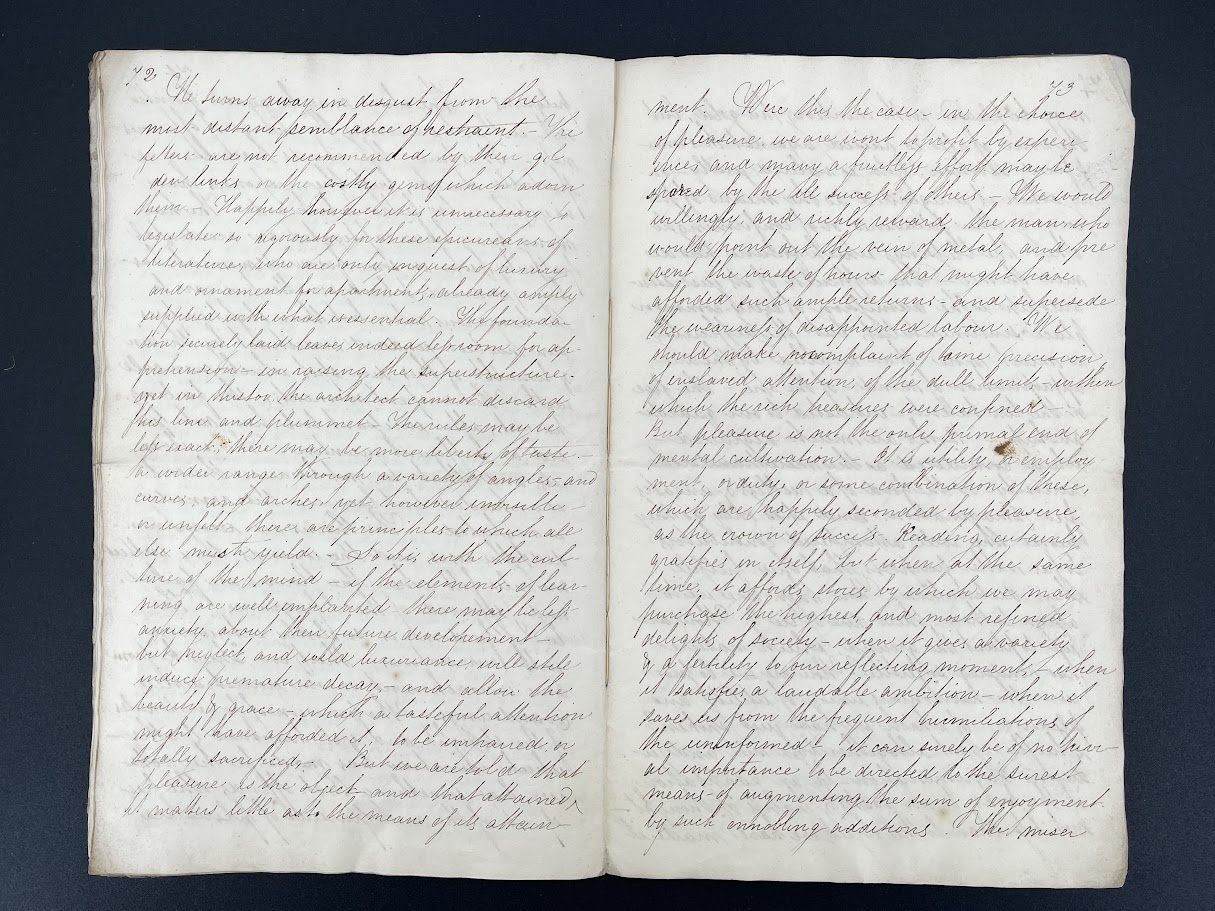 72
He turns away in disgust from the
most distant semblance of restraint. - The
fetters are not recommended by their gol
den links or the costly gems which adorn
them - Happily however it is unnecessary to
legislate so rigorously for these epicureans of
literature, who are only in quest of luxury
and ornament for apartments already amply
supplied with what is essential. The founda-
tion securely laid leaves indeed less room for ap-
prehension - in raising the superstructure.
yet in this too the architect cannot discard
his line and plummet - The rules may be
less exact; there may be more liberty of taste. -
a wider range through a variety of angles and
curves and arches, yet however invisible -
or unfelt there are principles to which all
else must yield. - So it is with the cul-
ture of the mind - if the elements of lear-
ning are well implanted there may be less
anxiety about their future developement -
but neglect and wild luxuriance will still
induce premature decay - and allow the
beauty & grace - which a tasteful attention
might have afforded it, to be impaired or
totally sacrificed, - But we are told that
pleasure is the object and that attained,
it matters little as to the means of its attain-
73
ment. Were this the case - in the choice
of pleasure we are wont to profit by experi
ence, and many a fruitless effort may be
spared by the ill success of others - We would
willingly and richly reward the man who
would point out the vein of metal, and pre
vent the waste of hours that might have
afforded such ample returns - and supersede
the weariness of disappointed labour. We
should make no complaint of tame precision
of enslaved attention, of the dull limits within
which the rich treasures were confined -
But pleasure is not the only primal end of
mental cultivation. - It is utility, or employ
ment, or duty, or some combination of these,
which are happily seconded by pleasure
as the crown of success. Reading, certainly
gratifies in itself, but when at the same
time, it affords stores by which we may
purchase the highest, and most refined
delights of society - when it gives a variety
& a fertility to our reflecting moments, - when
it satisfies a laudable ambition - when it
saves us from the frequent humiliations of
the uninformed - it can surely be of no triv-
al importance to be directed to the surest
means of augmenting the sum of enjoyment
by such ennobling additions. The miser